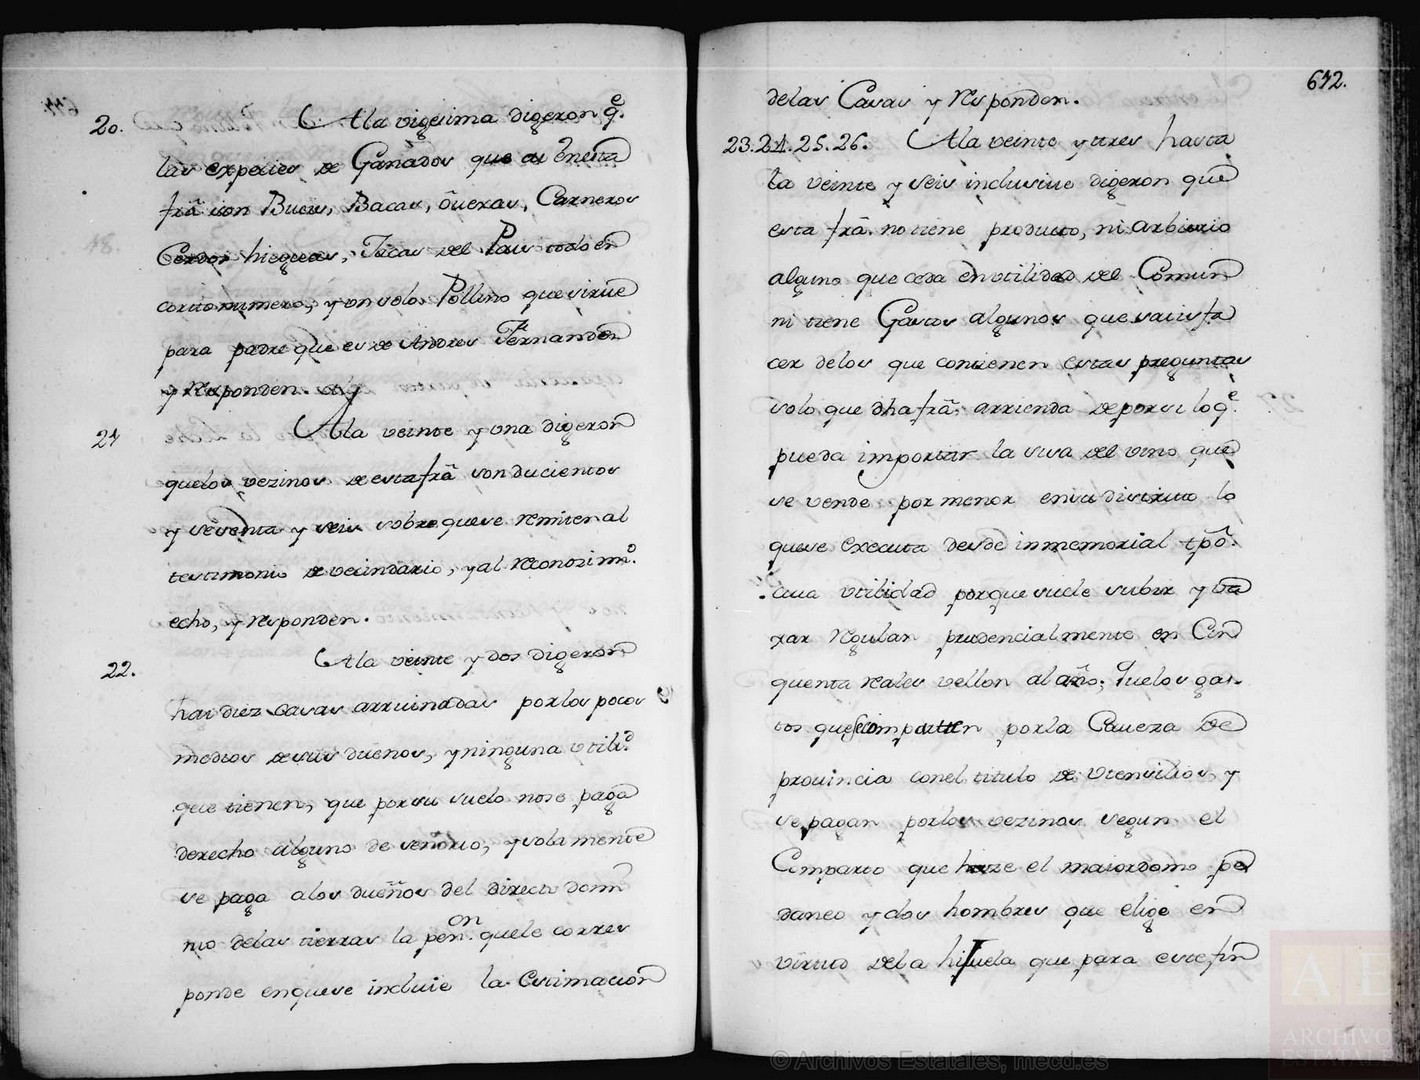 20. A la vigesima digeron q.e
las expecies de Ganados que ai en esta
frã son Bueis, Bacas, õuexas, Carneros
Cerdos hieguas, Jacas del Pais todo en
corto numero, y un solo Pollino que sirue
para padre que es de Andres Fernandez
y responden.
21 A la veinte y una digeron
que los vezinos de esta frã son ducientos
y sesenta y seis sobre que se remiten al
testimonio de vecindario, y al reconozimto.
echo, y responden.
22. A la veinte y dos digeron
hai diez casas arruinadas por los pocos
medios de sus duenos, y ninguna utilid.
que tienen, que por su suelo no se paga
derecho alguno de señorio, y solamente
se paga a los dueños del directo domi
nio de las tierras la penon. que le corres
ponde en que se incluie la estimacion
642.
de las Casas y responden.
23. 24. 25. 26. A la veinte y tres hasta
la veinte y seis inclusiue digeron que
esta frã. no tiene producto, ni arbitrio
alguno que ceda en utilidad del Comun
ni tiene Gastos algunos que satisfa
cer de los que contienen estas preguntas
solo que dha frã. arrienda de por si lo q.e
pueda importar la sisa del vino que
se vende por menor en su distrito lo
que se executa desde inmemorial tpõ.
cuia utilidad porque suele subir y ba
xar regulan prudencialmente en Cin
quenta reales vellon al año; Que los gas
tos que se imparten por la Caueza de
prouincia con el titulo de utensilios, y
se pagan por los vezinos segun el
Comparto que haze el maiordomo pe
daneo y dos hombres que elige en
virtud de la hijuela que para este fin
© Archivos Estatales, mecd.es
AE
ARCHIVOS
ESTATALES